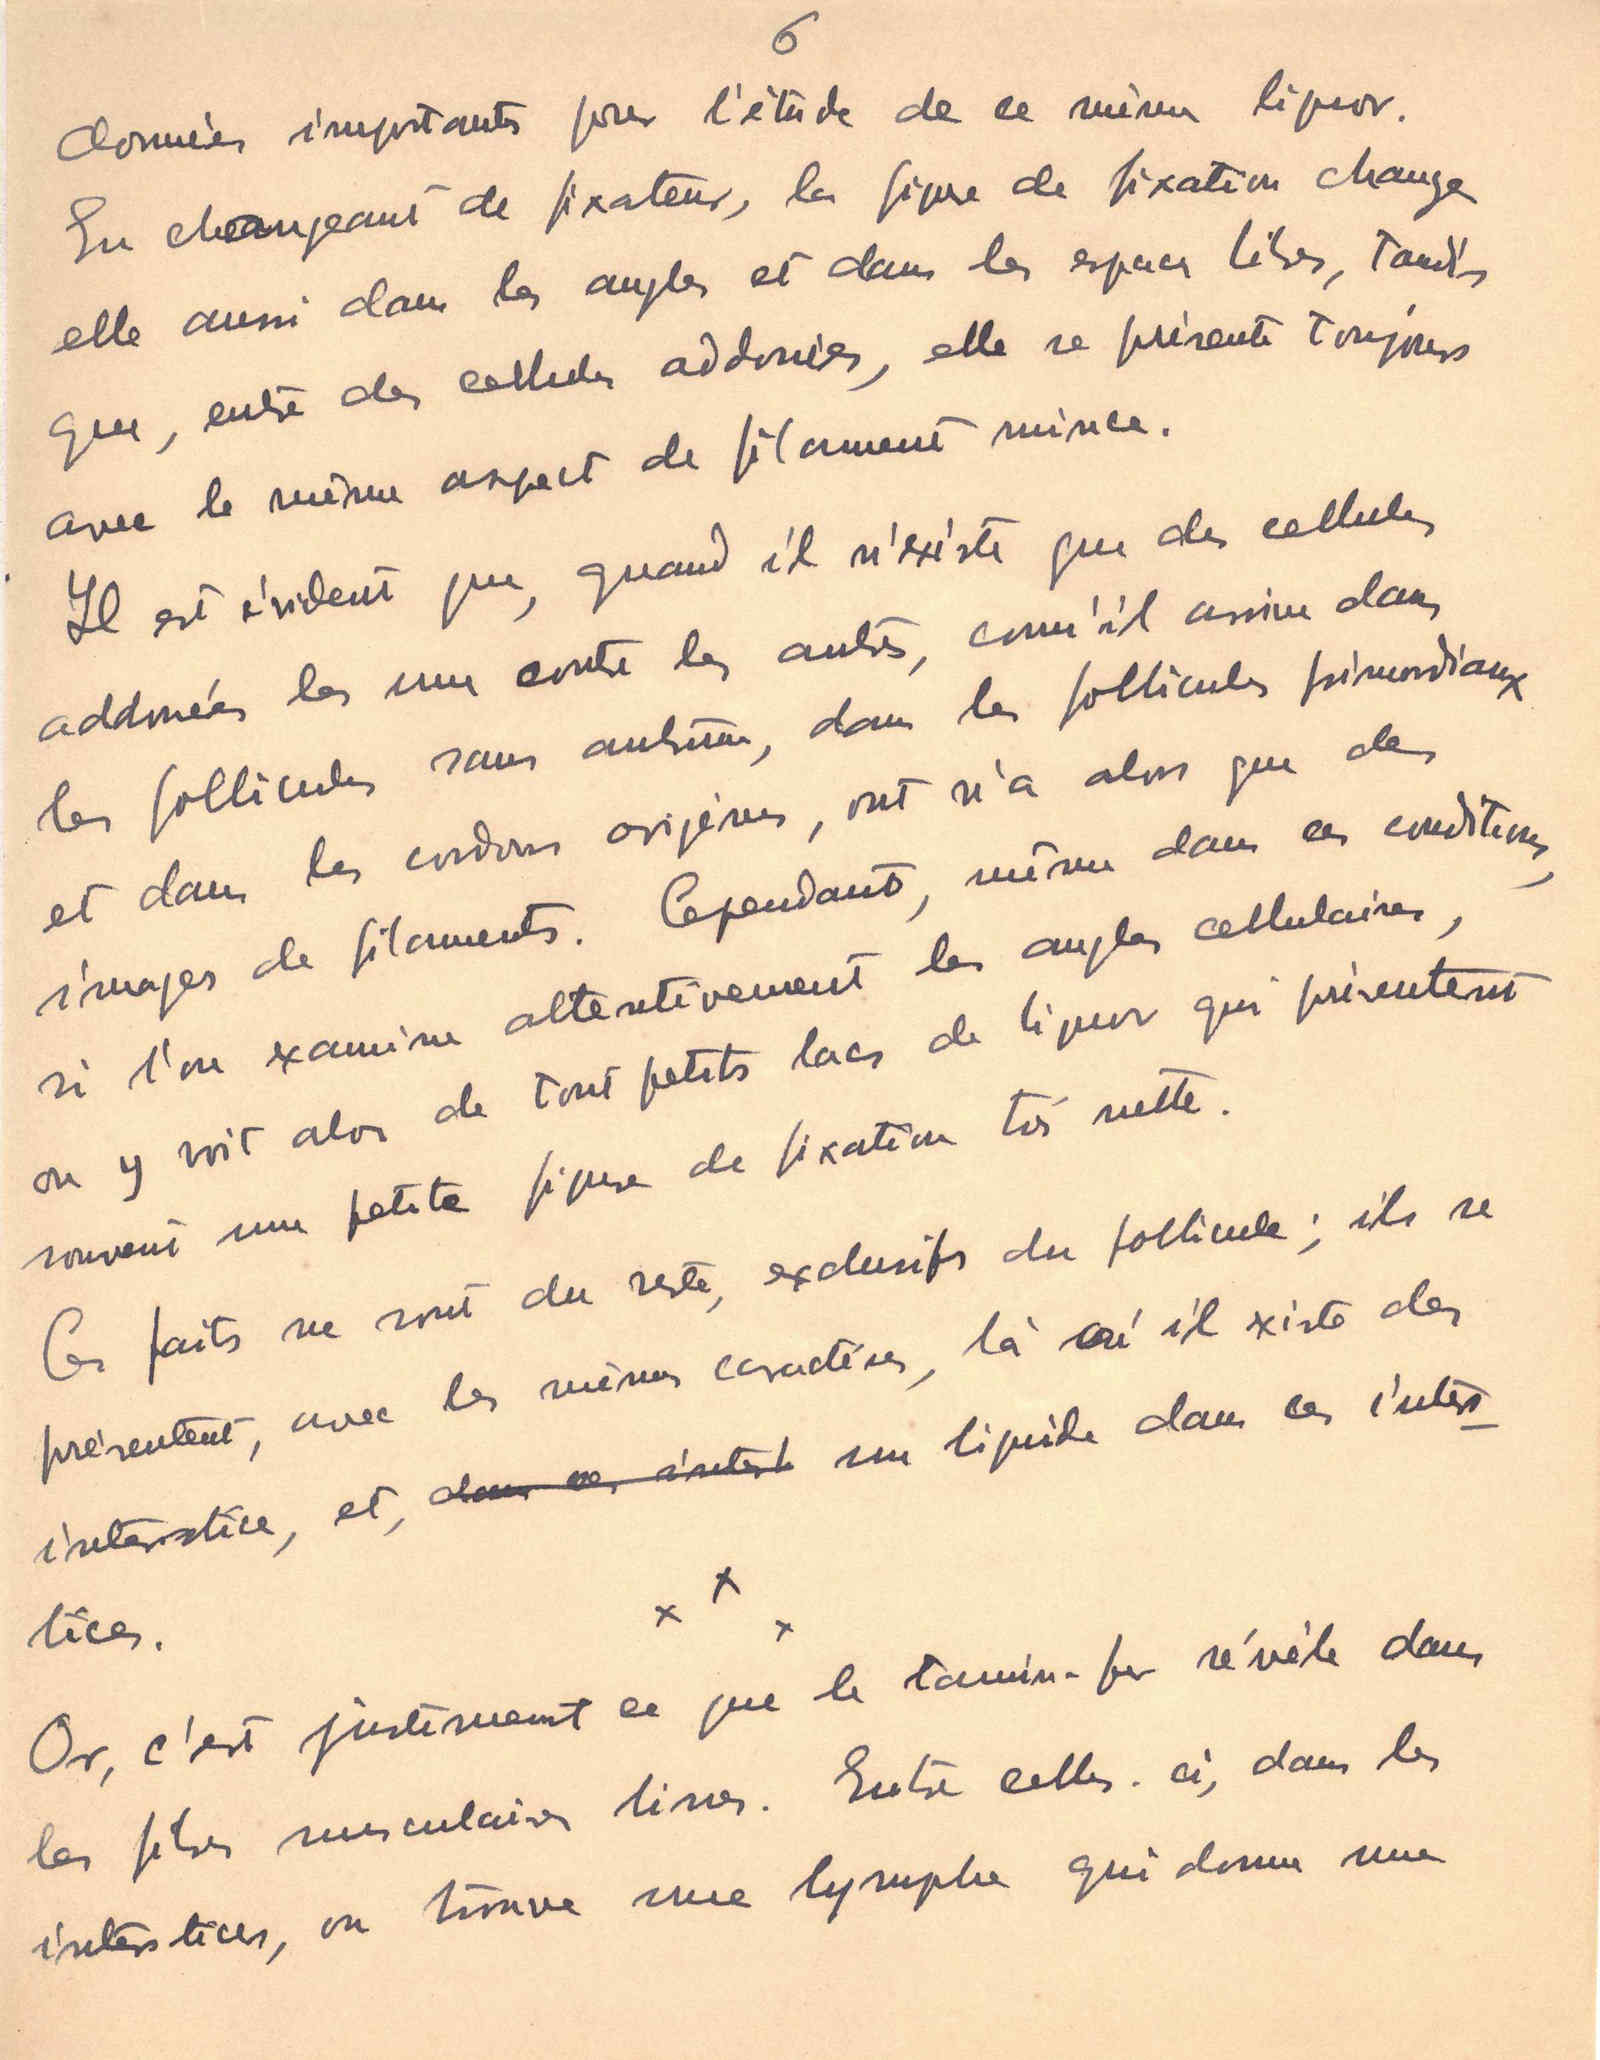 6
données importants pour l'étude de ce même liquor.
En changeant de fixateur, la figure de fixation change
elle aussi dans les angles et dans les espaces libres, tandis
que, entre des cellules addonées, elle se présente toujours
avec le même aspect de filament mince.
Il est évident que, quand il n'existe que des cellules
addonées les une contre les autres, com'il arrive dans
les follicules sans antrum, dans les follicules primordiaux
et dans les cordons origènes, ont n'a alors que des
images de filaments. Cependant, même dans ces conditions,
si l'on examine attentivement les angles cellulaires,
on y voit alors de tout petits lacs de liquor qui présentent
souvent une petite figure de fixation très nette.
Ces faits ne sont du reste, exclusifs du follicule; ils se
présentent, avec les mêmes caractères, là où il existe des
interstice, et, dans ces interst un liquide dans ces inters-
tices.
x x x
Or, c'est justement ce que le tannin-fer révèle dans
les fibres musculaires lisses. Entre celles-ci, dans les
interstices, on trouve une lymphe qui donne une